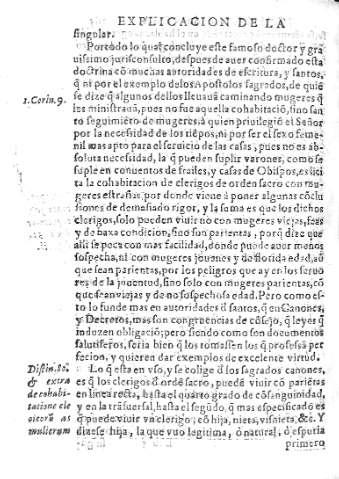 EXPLICACION DE LA
singular.
Por todo lo qual concluye este famoso doctor y gra
uissimo jurisconsulto, despues de auer confirmado esta
doctrina cõ muchas autoridades de escritura, y santos,
q̃ ni por el exemplo de los Apostoles sagrados, de quiẽ
se dize q̃ algunos dellos lleuauã caminando mugeres q̃
les ministrauã, pues no fue aquella cohabitaciõ, sino san
to seguimiẽto de mugeres, à quien priuilegiò el Señor
por la necessidad de los tiẽpos, ni por ser el sexo femẽ-
nil mas apto para el seruicio de las casas, pues no es ab-
soluta necessidad, la q̃ pueden suplir varones, como se
suple en conuentos de frailes, y casas de Obispos, es lici
ta la cohabitacion de clerigos de orden sacro con mu-
geres estrañas, por donde viene à poner algunas cõclu
siones de demasiado rigor, y la suma es que los dichos
clerigos, solo pueden viuir con mugeres viejas, feas
y de baxa condicion, sino son parientas, porq̃ dize que
alli se peca con mas facilidad, donde puede auer menos
sospecha, ni con mugeres jouenes y de florida edad, aũ
que sean parientas, por los peligros que ay en los feruo
res de la jouentud, sino solo con mugeres parientas, cõ
que sean viejas y de no sospechosa edad. Pero como es-
to lo funde mas en autoridades d̃ santos, q̃ en Canones,
y Decretos, mas son congruencias de cõsejo, q̃ leyes q̃
induzen obligaciõ; pero siendo como son documentos
salutiferos, seria biẽ q̃ los tomassen los q̃ professã per
fecion, y quieren dar exemplos de excelente virtud.
Lo q̃ esta en vso, y se colige d̃ los sagrados canones,
es q̃ los clerigos d̃ ordẽ sacro, puedẽ viuir cõ pariẽtas
en linea recta, hasta el quarto grado de cõsanguinidad,
y en la trãsuersal, hasta el segũdo, q̃ mas especificado es
q̃ puede viuir vn clerigo, cõ hija, nieta, visnieta, &c. Y
dizese hija, la que vuo legitima, ò natural, ò espuria
primero
1. Corin. 9.
Distin. 80.
& extra
de cohabi-
tatione cle
ricorũ as
mulierum